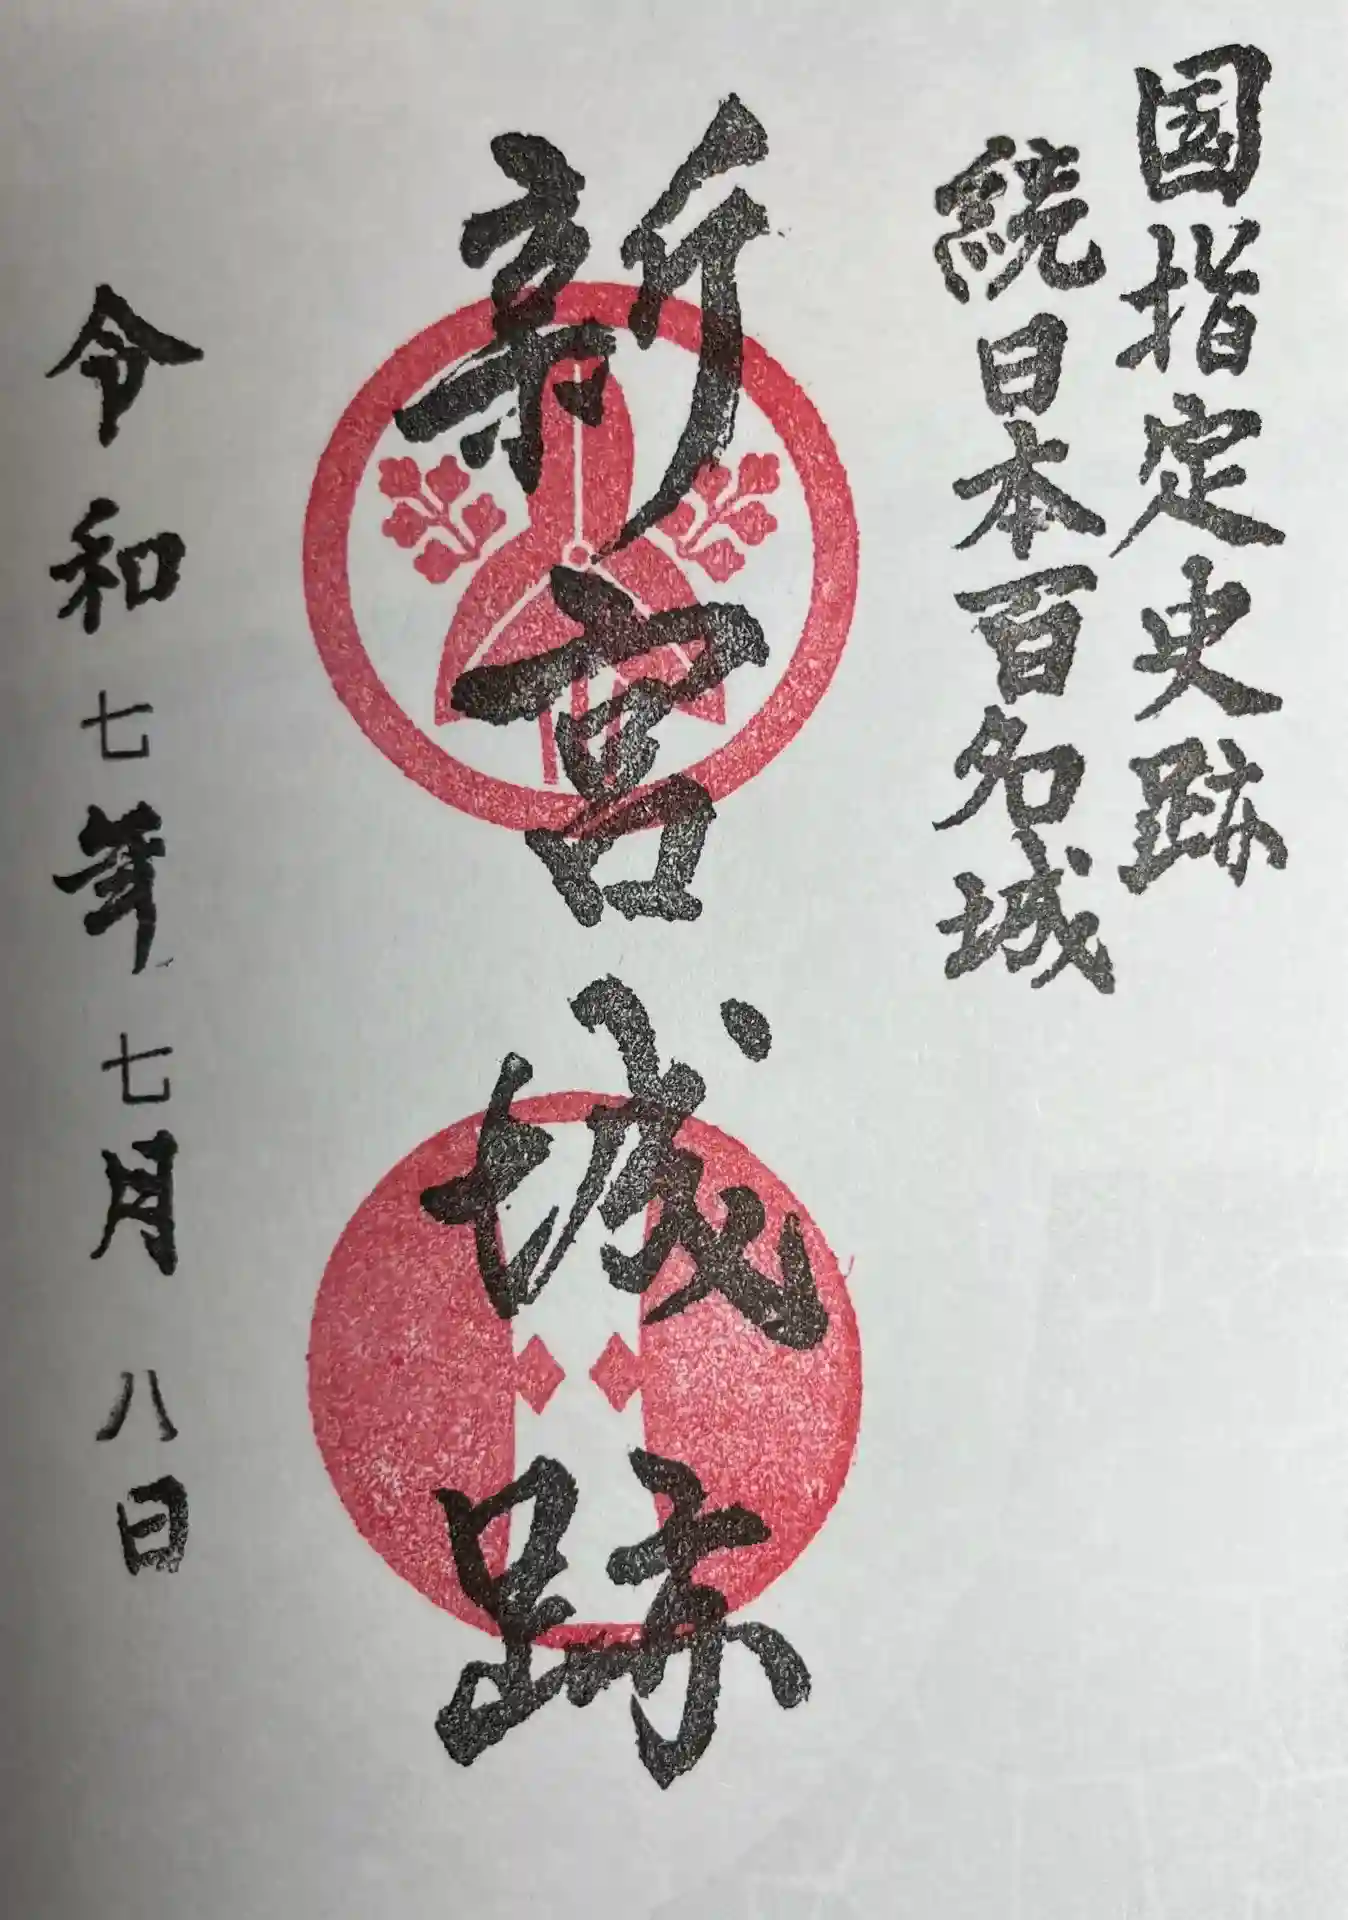 国指定史跡
続日本百名城
新宮城跡
令和七年七月八日